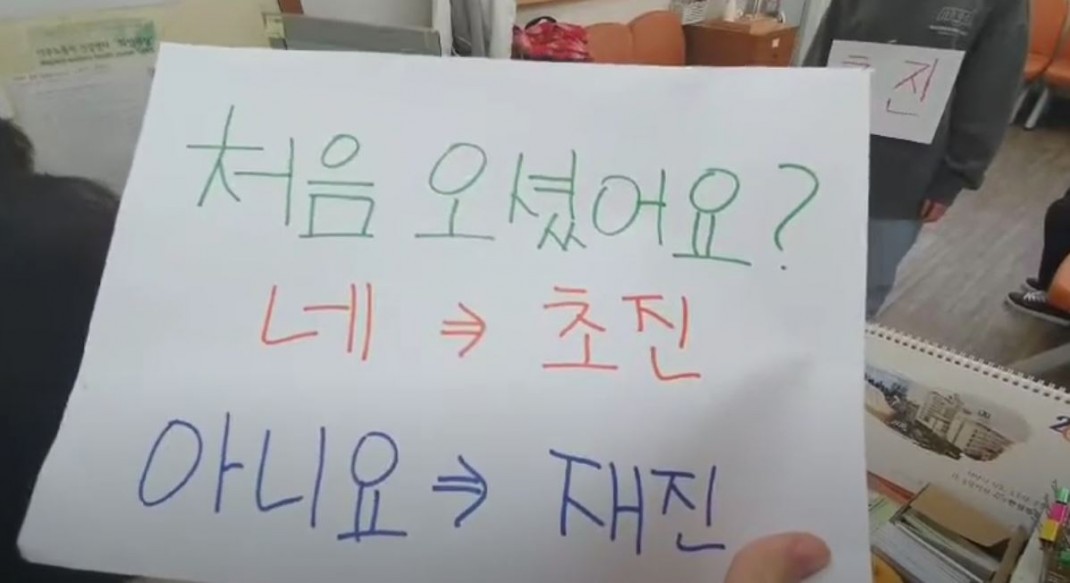 처음 오셨어요?
네 ⇒ 초진
아니요 ⇒ 재진
진